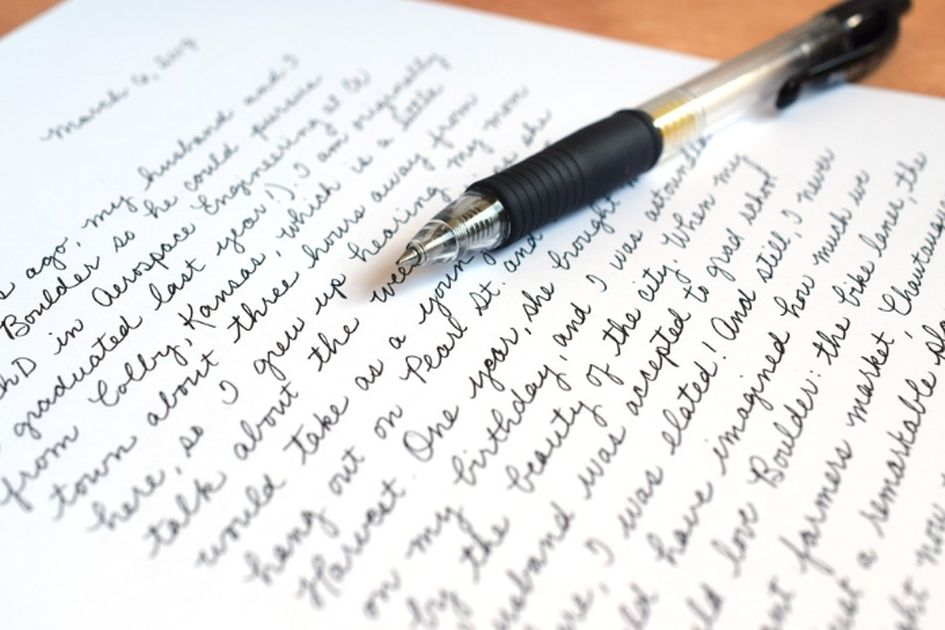 March 6,
ago, my husband and I
Boulder so he could pursue
PhD in Aerospace Engineering at CU
graduated last year!). I am originally
from Colby, Kansas, which is a little
town about three hours away from
here, so I grew up hearing my mom
talk about the she
would take as a young
hang out on Pearl St. and
Harvest. One year, she brought
on my birthday, and I was astounded
by the beauty of the city. When my
husband was accepted to grad school
here, I was elated! And still, I never
could have imagined how much we
would love Boulder: the bike lanes, the
farmers market, Chautauqua
just a remarkable
right now